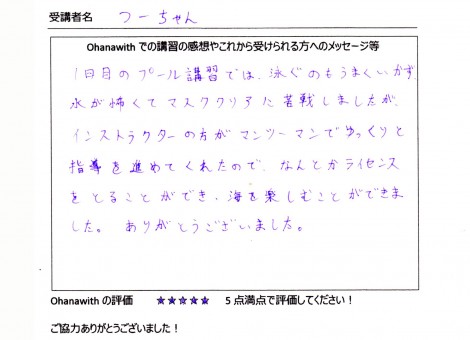 受講者名 つーちゃん
Ohanawith での講習の感想やこれから受けられる方へのメッセージ等
1日目のプール講習では、泳ぐのもうまくいかず、
水が怖くてマスククリアに苦戦しましたが、
インストラクターの方がマンツーマンでゆっくりと
指導を進めてくれたので、なんとかライセンス
をとることができ、海を楽しむことができま
した。 ありがとうございました。
Ohanawith の評価 ★★★★★ 5 点満点で評価してください！
ご協力ありがとうございました！